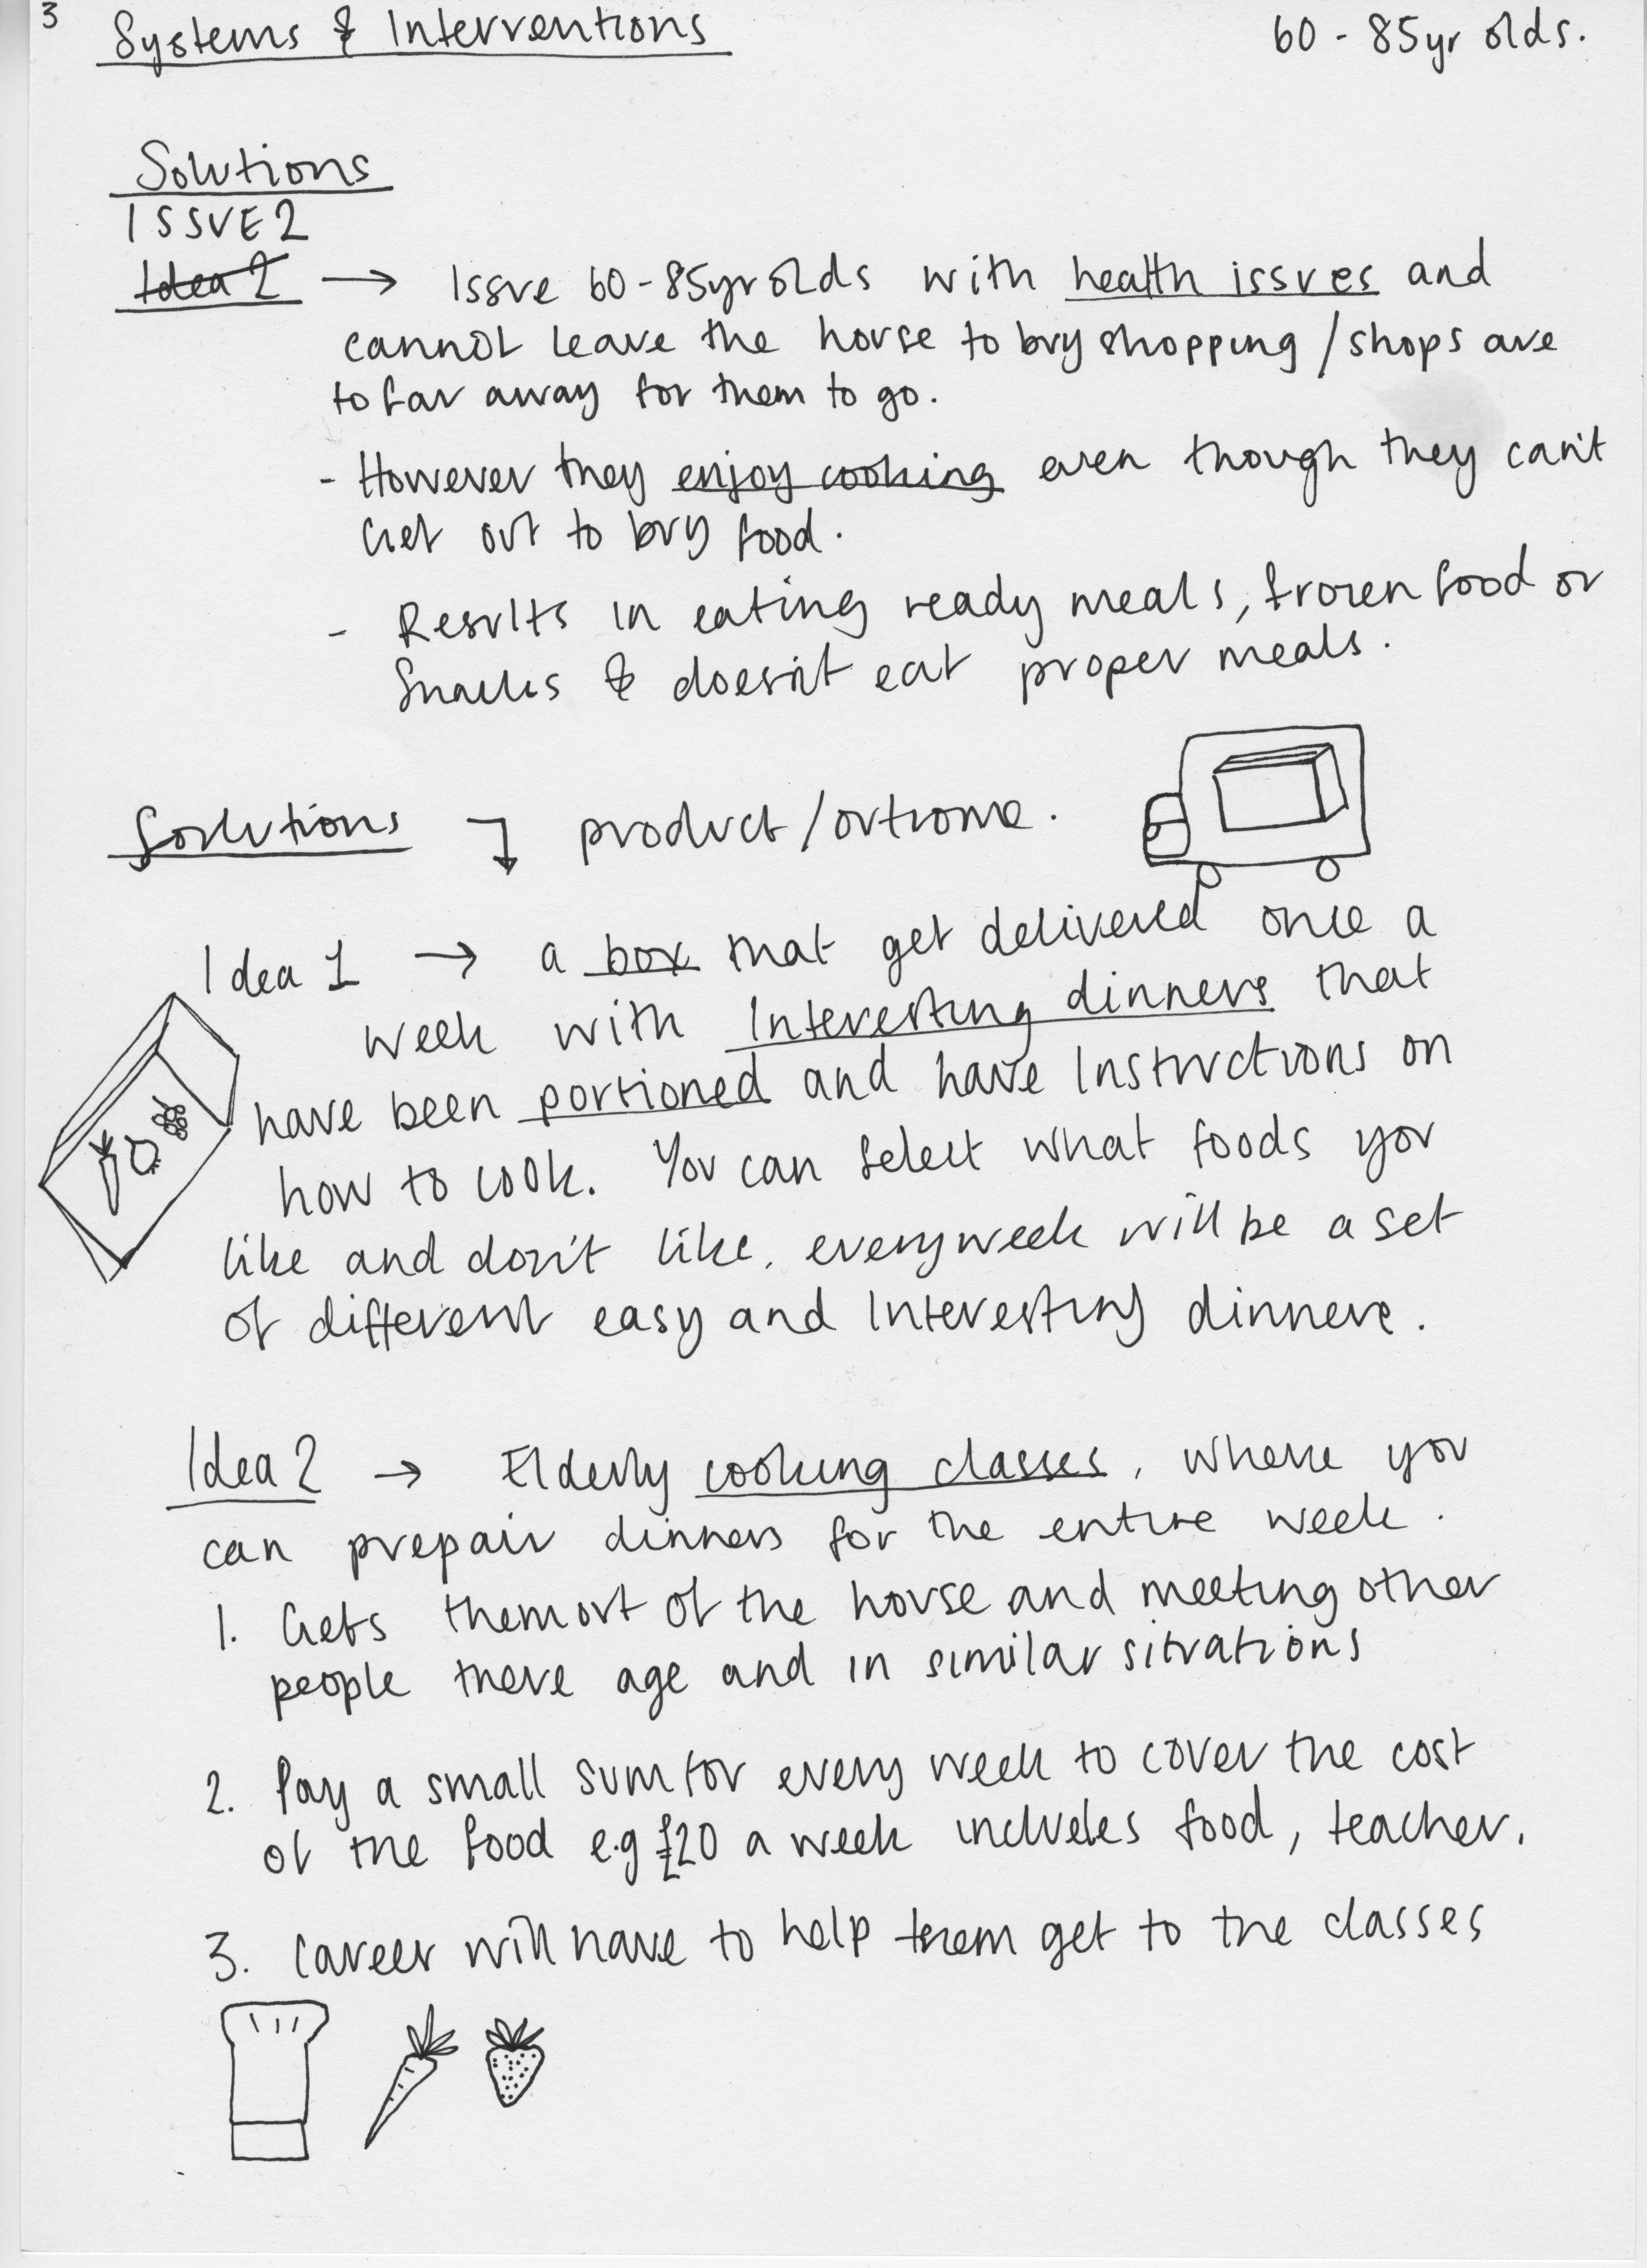 3
Systems & Interventions
60 - 85yr olds.
Solutions
ISSUE 2
Idea 2 → Issue 60-85yr olds with health issues and
cannot leave the house to buy shopping / shops are
to far away for them to go.
- However they enjoy cooking even though they can't
Get out to buy food.
- Results in eating ready meals, frozen food or
Snacks & doesn't eat proper meals.
Solutions ↴ product/outcome.
Idea 1 → a box that get delivered once a
week with Interesting dinners that
have been portioned and have Instructions on
how to cook. You can select what foods you
like and don't like, everyweek will be a set
of different easy and Interesting dinners.
Idea 2 → Elderly cooking classes, where you
can prepair dinners for the entire week.
1. Gets them out of the house and meeting other
people there age and in similar situations
2. Pay a small sum for every week to cover the cost
of the food e.g £20 a week includes food, teacher.
3. Career will have to help them get to the classes